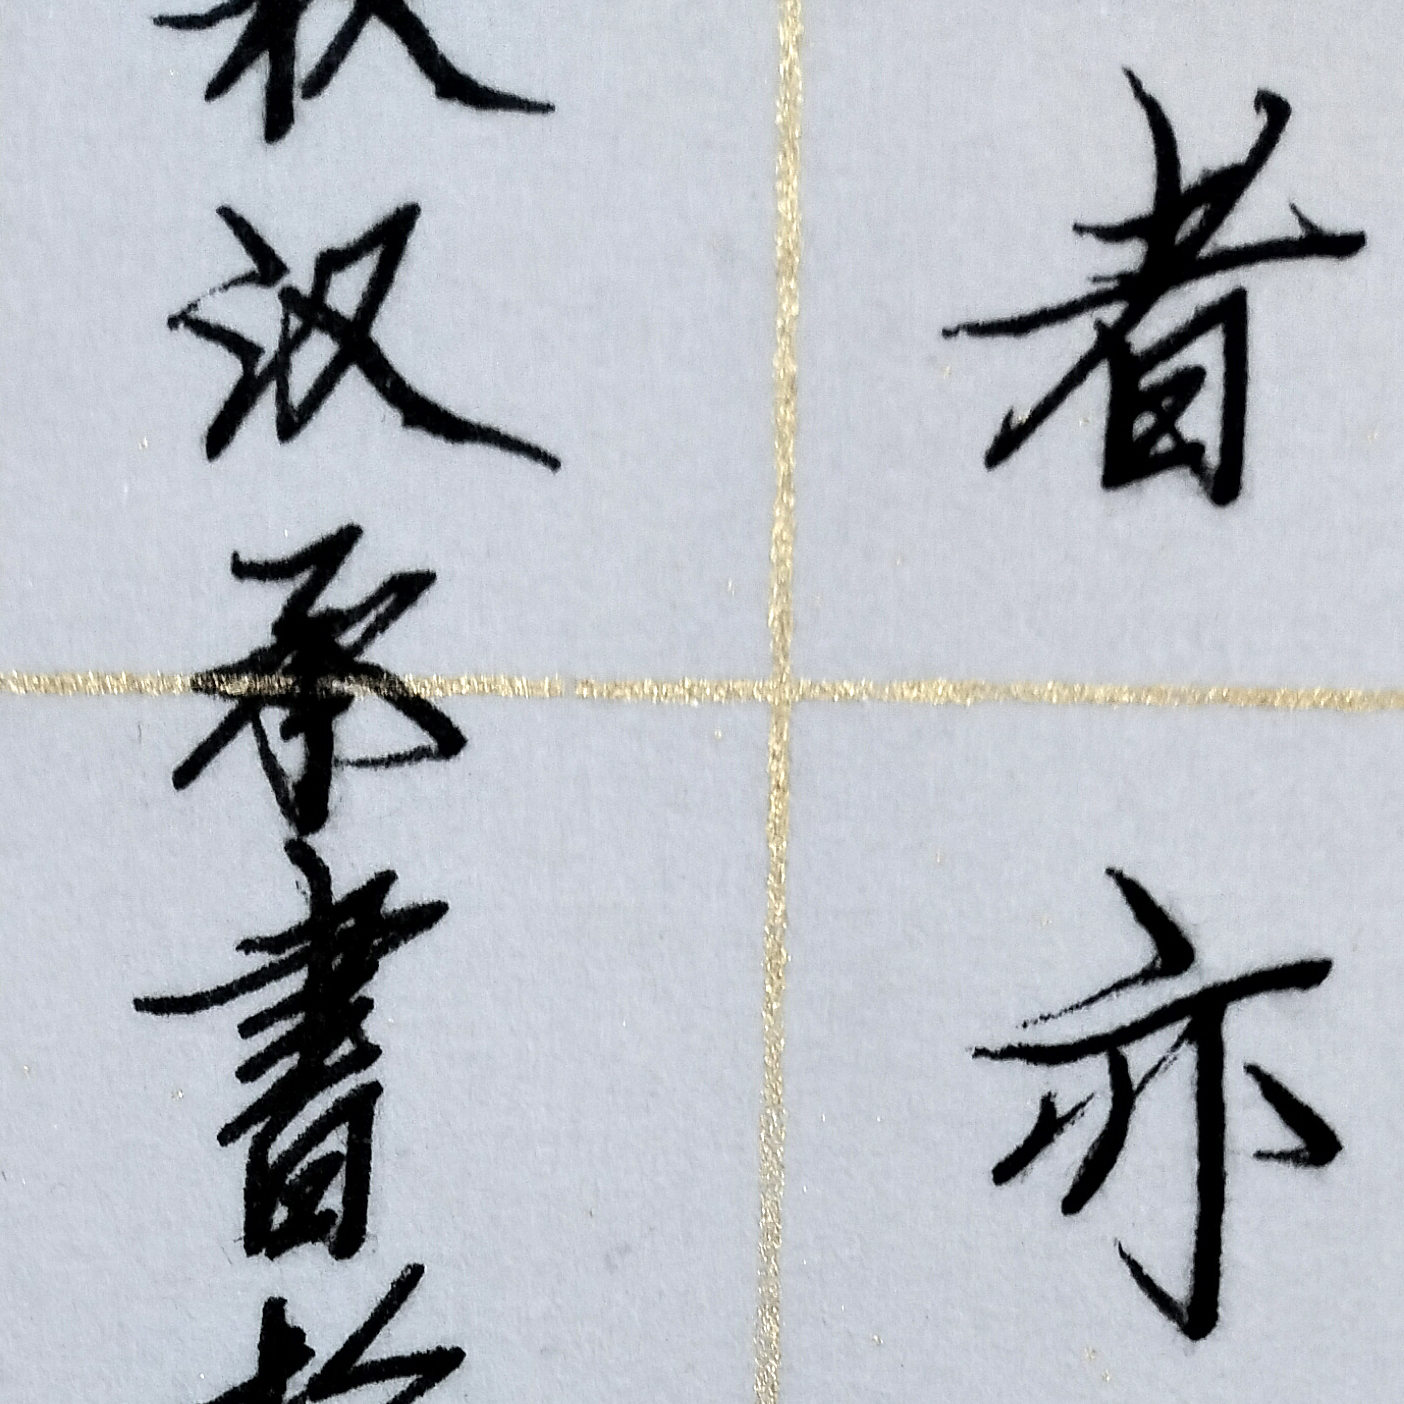 者亦
汉承書